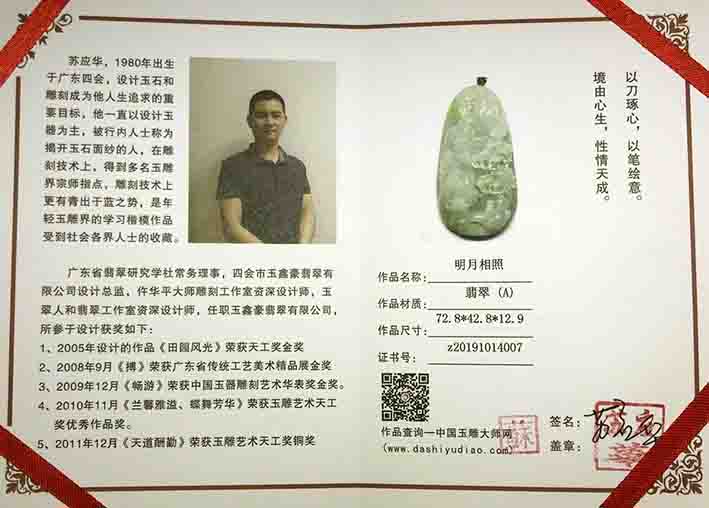 苏应华，1980年出生
于广东四会，设计玉石和
雕刻成为他人生追求的重
要目标，他一直以设计玉
器为主，被行内人士称为
揭开玉石面纱的人，在雕
刻技术上，得到多名玉雕
界宗师指点，雕刻技术上
更有青出于蓝之势，是年
轻玉雕界的学习楷模作品
受到社会各界人士的收藏。
广东省翡翠研究学社常务理事，四会市玉鑫豪翡翠有
限公司设计总监、仵华平大师雕刻工作室资深设计师，玉
翠人和翡翠工作室资深设计师，任职玉鑫豪翡翠有限公司，
所参于设计获奖如下：
1、2005年设计的作品《田园风光》荣获天工奖金奖
2、2008年9月《搏》荣获广东省传统工艺美术精品展金奖
3、2009年12月《畅游》荣获中国玉器雕刻艺术华表奖金奖。
4、2010年11月《兰馨雅溢、蝶舞芳华》荣获玉雕艺术天工
奖优秀作品奖。
5、2011年12月《天道酬勤》荣获玉雕艺术天工奖铜奖
以刀琢心，以笔绘意。
境由心生，性情天成。
作品名称：明月相照
作品材质：翡翠（A）
作品尺寸：72.8*42.8*12.9
证书号：z20191014007
作品查询—中国玉雕大师网
(www.dashiyudiao.com)
蘇
签名：
盖章：